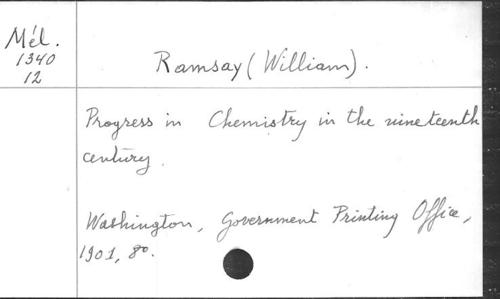 Mél.
1340
12
Ramsay (William).
Progress in Chemistry in the nineteenth
century.
Washington, Government Printing Office,
1901, 8o.